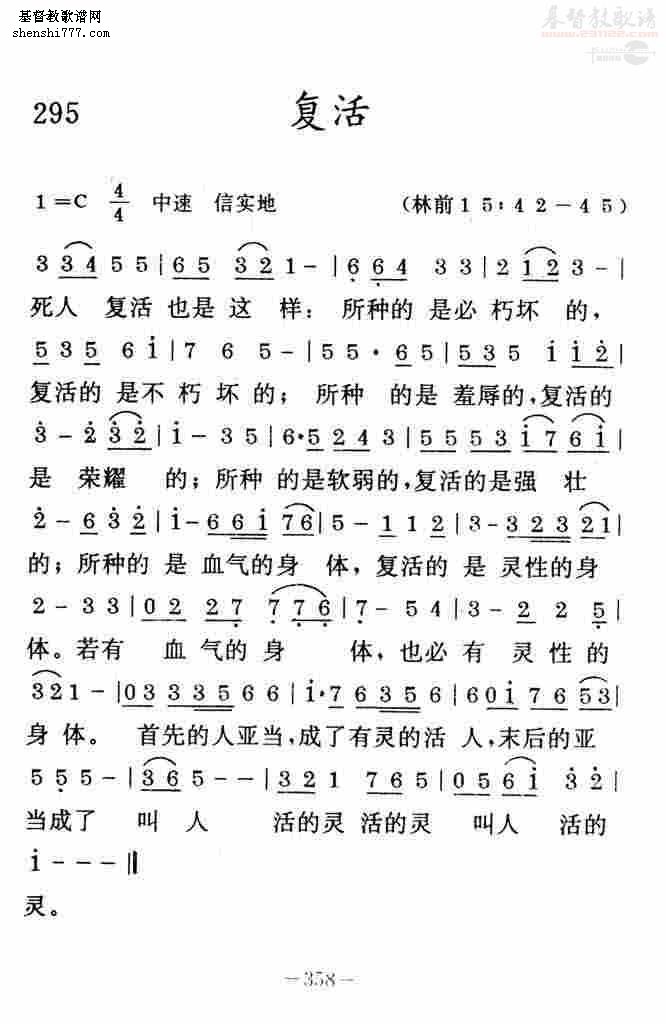 基督教歌谱网
shenshi777.com
基督教歌谱
295 复活
1=C 4/4 中速 信实地 (林前15:42-45)
3 3 4 5 5 | 6 5 3 2 1 - | 6 6 4 3 3 | 2 1 2 3 - |
死人 复活 也是 这 样: 所种的 是必 朽坏 的,
5 3 5 6 i | 7 6 5 - | 5 5 · 6 5 | 5 3 5 i i 2 |
复活的 是不 朽 坏 的; 所种 的是 羞辱的,复活的
3 - 2 3 2 | i - 3 5 | 6·5 2 4 3 | 5 5 5 3 i 7 6 i |
是 荣耀 的; 所种 的是软弱的,复活的是强 壮
2 - 6 3 2 | i - 6 6 i 7 6 | 5 - 1 1 2 | 3 - 3 2 3 2 1 |
的; 所种的 是 血气的身 体, 复活的 是 灵性的身
2 - 3 3 | 0 2 2 7 7 7 6 | 7 - 5 4 | 3 - 2 2 5 |
体。若有 血 气的 身 体, 也必 有 灵 性 的
3 2 1 1 - | 0 3 3 3 3 5 6 6 | i·7 6 3 5 6 | 6 0 i 7 6 5 3 |
身 体。 首先的人亚当,成了有灵的活 人,末后的亚
5 5 5 - | 3 6 5 - - | 3 2 1 7 6 5 | 0 5 6 i 3 2 |
当成了 叫 人 活的灵 活的灵 叫人 活的
i - - - ‖
灵。
-358-